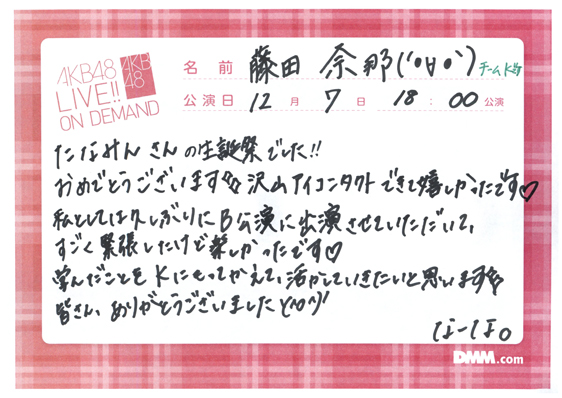 AKB48
LIVE!!
ON DEMAND
AKB
48
名前 藤田 奈那('●∀●`) チームK
公演日 12月 7日 18:00公演
たなみんさんの生誕祭でした!!
おめでとうございます 沢山アイコンタクトできて嬉しかったです♡
私としては久しぶりにB公演に出演させていただいて、
すごく緊張したけど楽しかったです♡
学んだことをKにもってかえて、活かしていきたいと思います
皆さん、ありがとうございました
なーな。
DMM.com